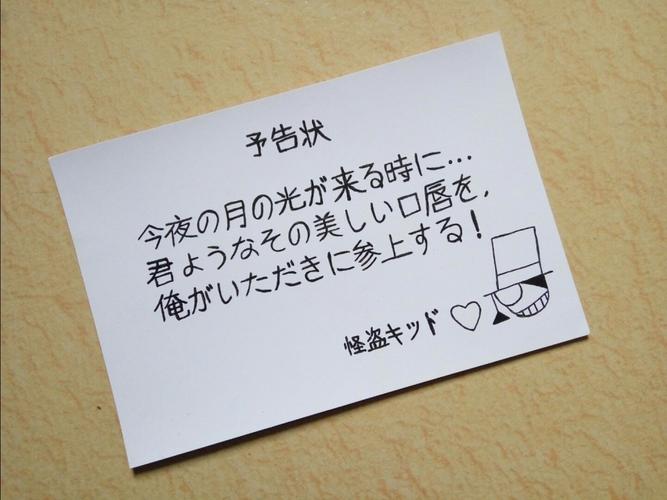 予告状
今夜の月の光が来る時に…
君ようなその美しい口唇を,
俺がいただきに参上する!
怪盗キッド